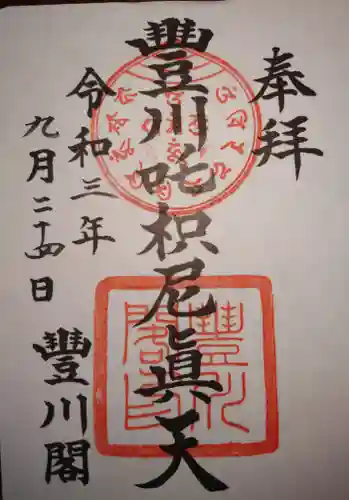 奉拝
豐川吒枳尼眞天
令和三年
九月二十四日
豐川閣